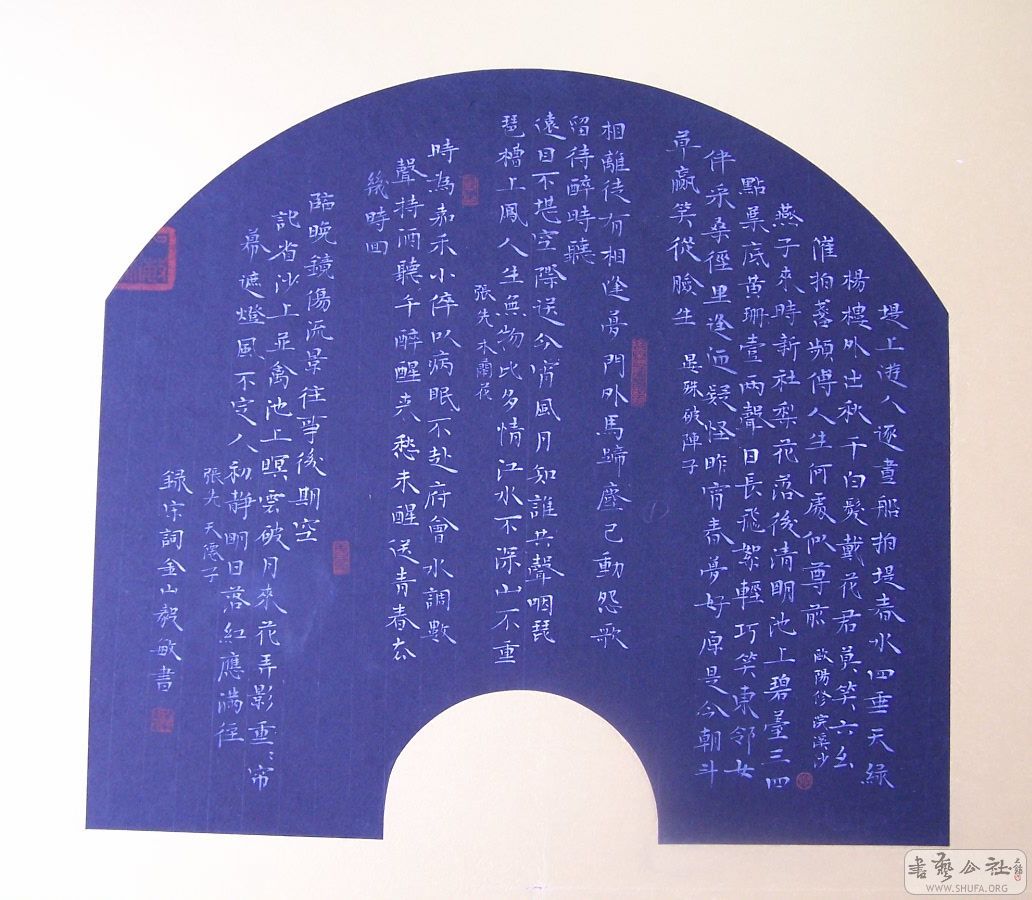 堤上游人逐畫船拍堤春水四垂天緑
楊樓外出秋千白髮戴花君莫笑六幺
催拍盞頻傳人生何處似尊前
歐陽修浣溪沙
燕子來時新社梨花落後清明池上碧薹三四
點葉底黃珊壹兩聲日長飛絮輕巧笑東邻女
伴采桑徑里逢迎疑怪昨宵春夢好原是今朝斗
草赢笑從臉生
晏殊破陣子
相離徒有相逢夢門外馬蹄塵已動怨歌
留待醉時聽
遠目不堪空際送今宵風月知誰共聲咽琵
琶槽上鳳人生無物比多情江水不深山不重
張先木蘭花
時為嘉禾小倅以病眠不赴府會水調數
聲持酒聽午醉醒來愁未醒送青春去
幾時回
臨晚鏡傷流景往事後期空
記省沙上並禽池上暝雲破月來花弄影重重帘
幕遮燈風不定人初靜明日落紅應滿徑
張先天仙子
録宋詞金山毅敏書
書藝公社
WWW.SHUFA.ORG